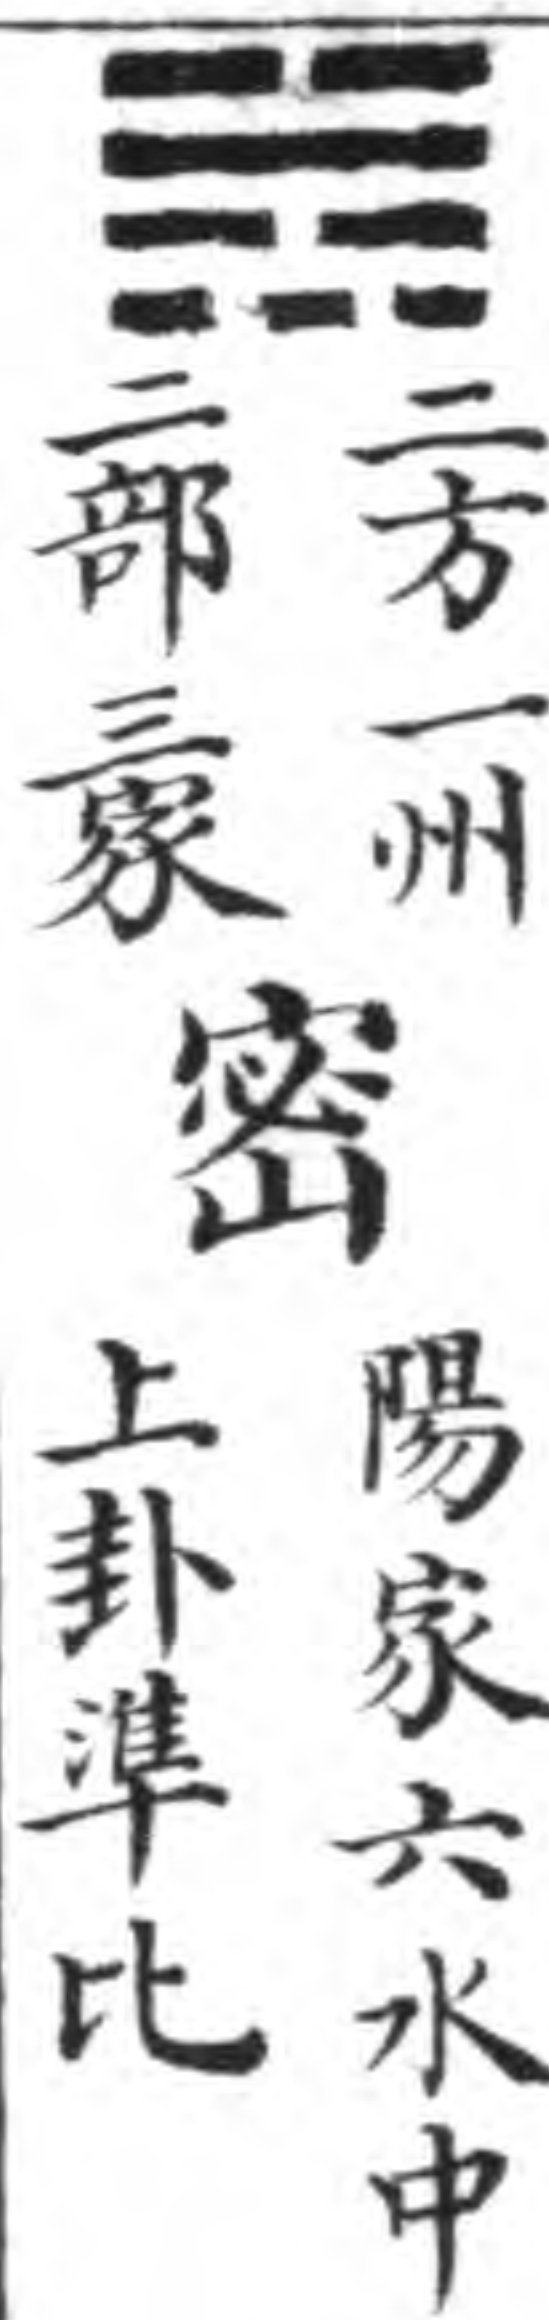 二方一州
二部三家
密
陽家六水中
上卦準比